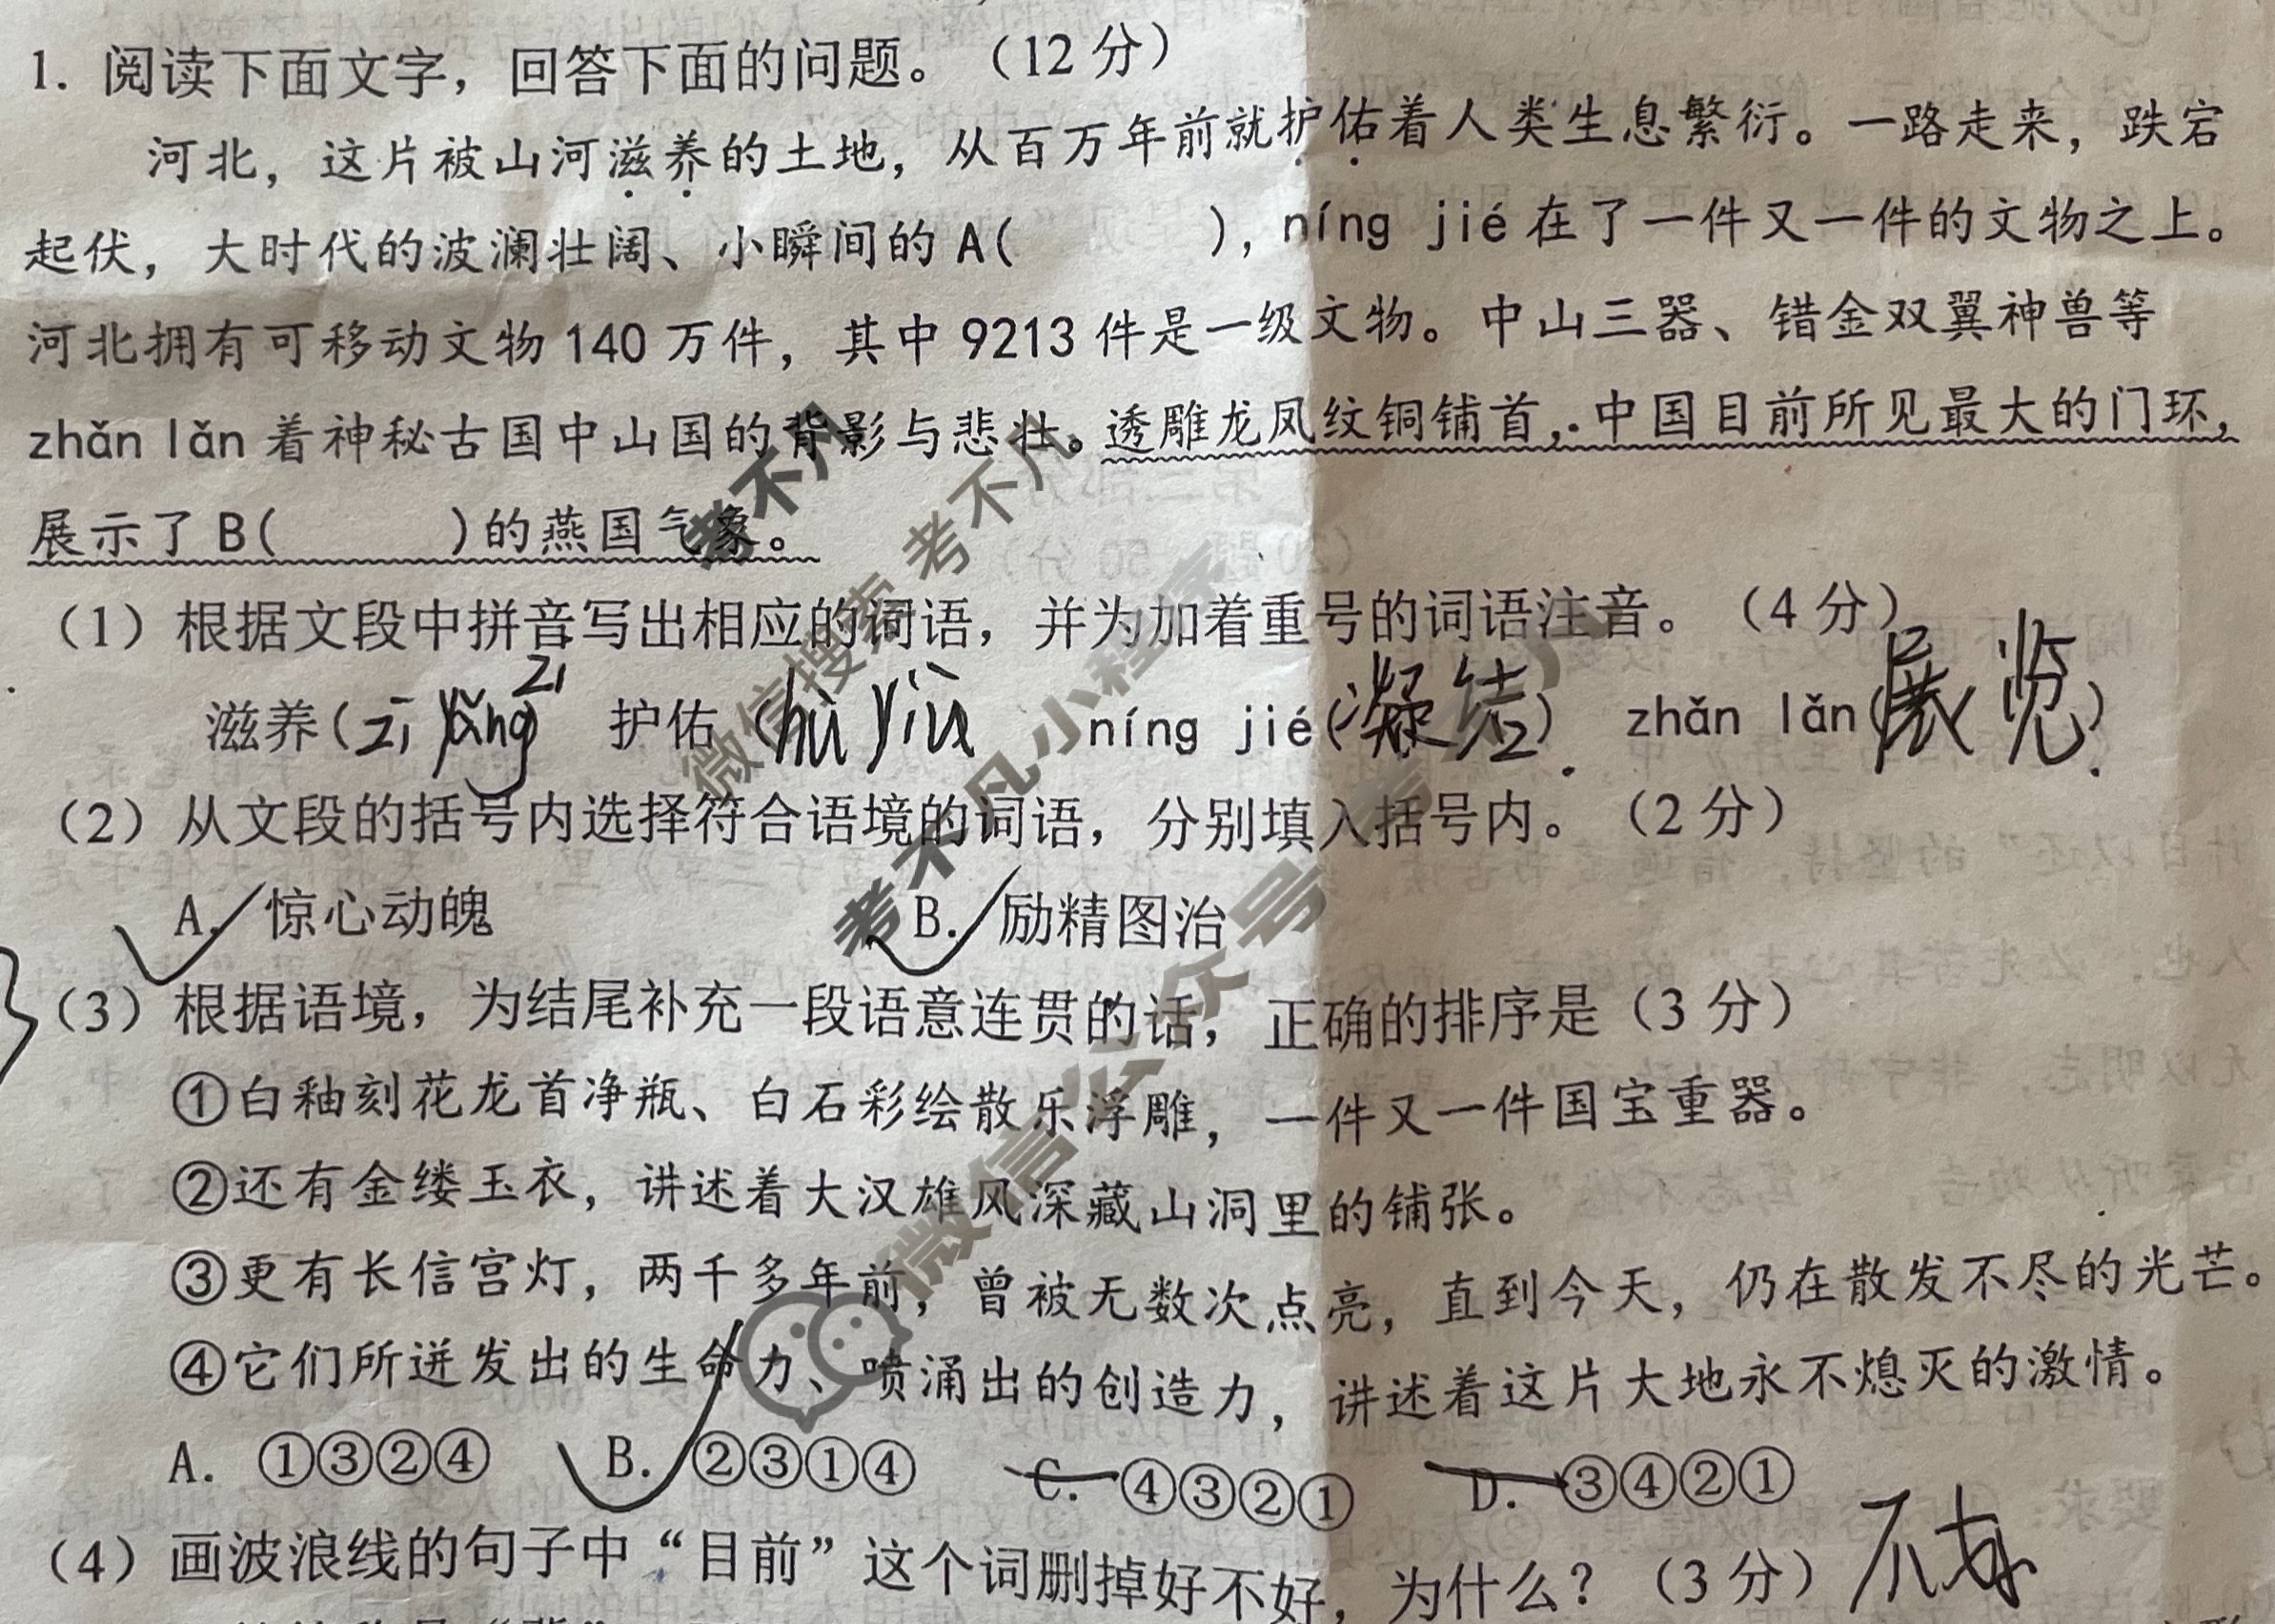 1. 阅读下面文字，回答下面的问题。（12 分）
河北，这片被山河滋养的土地，从百万年前就护佑着人类生息繁衍。一路走来，跌宕
起伏，大时代的波澜壮阔、小瞬间的 A(　　　)，níng jié 在了一件又一件的文物之上。
河北拥有可移动文物 140 万件，其中 9213 件是一级文物。中山三器、错金双翼神兽等
zhǎn lǎn 着神秘古国中山国的背影与悲壮。透雕龙凤纹铜铺首，中国目前所见最大的门环，
展示了 B(　　　)的燕国气象。
（1）根据文段中拼音写出相应的词语，并为加着重号的词语注音。（4 分）
zī
滋养(zī yǎng)　护佑(hù yiù　níng jié(凝结)　zhǎn lǎn(展览)
（2）从文段的括号内选择符合语境的词语，分别填入括号内。（2 分）
A. 惊心动魄　B. 励精图治
（3）根据语境，为结尾补充一段语意连贯的话，正确的排序是（3 分）
①白釉刻花龙首净瓶、白石彩绘散乐浮雕，一件又一件国宝重器。
②还有金缕玉衣，讲述着大汉雄风深藏山洞里的铺张。
③更有长信宫灯，两千多年前，曾被无数次点亮，直到今天，仍在散发不尽的光芒。
④它们所迸发出的生命力、喷涌出的创造力，讲述着这片大地永不熄灭的激情。
A. ①③②④　B. ②③①④　C. ④③②①　D. ③④②①
（4）画波浪线的句子中“目前”这个词删掉好不好，为什么？（3 分）不好
考不凡
微信搜索 考不凡
考不凡小程序
微信公众号 考不凡